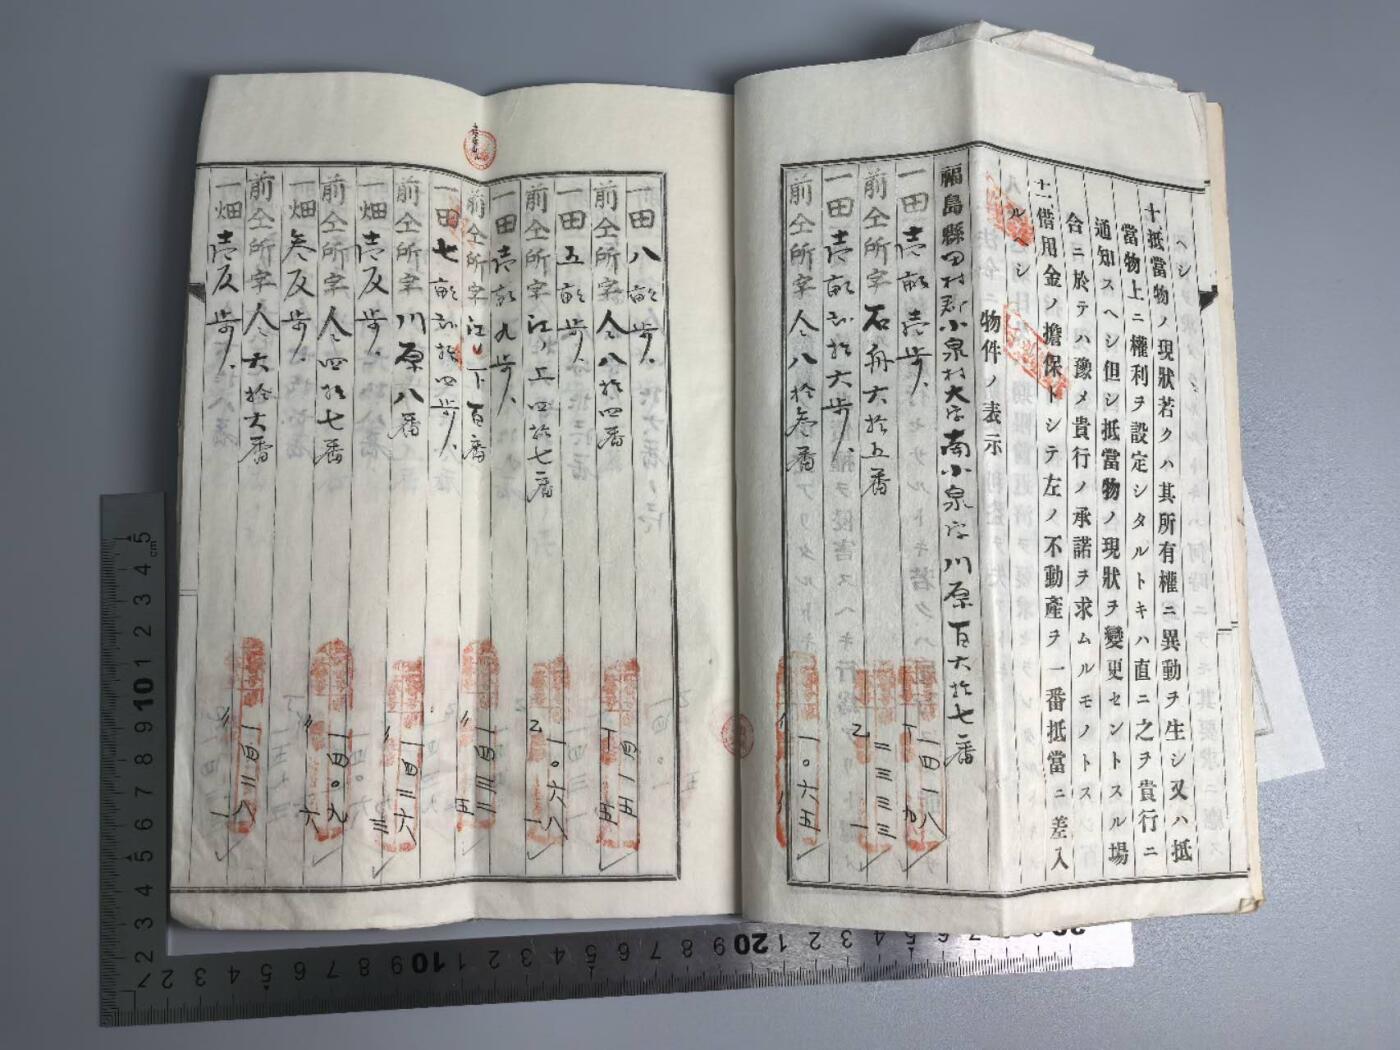 ヘシ
十抵當物ノ現狀若クハ其所有權ニ異動ヲ生シ又ハ抵
當物上ニ權利ヲ設定シタルトキハ直ニ之ヲ貴行ニ
通知スヘシ但シ抵當物ノ現狀ヲ變更セントスル場
合ニ於テハ豫メ貴行ノ承諾ヲ求ムルモノトス
十一借用金ノ擔保トシテ左ノ不動產ヲ一番抵當ニ差入
ルヘシ
物件ノ表示
福島縣田村郡小泉村大字南小泉字川原百六拾七番
一田壱畝壱歩
丁一四一八九
前仝所字石舟六拾五番
乙二三三三一
一田壱畝弐拾六歩
前仝所字仝八拾叁番
〃一〇六五八
一田八畝歩
前仝所字仝八拾四番
丁一四一五五
一田五畝歩
前仝所字江ノ上四拾七番
乙一〇六八一
一田壱畝九歩
前仝所字江ノ下百番
〃一四三二五
一田七畝弐拾四歩
前仝所字川原八番
〃一四二六三
一畑壱反歩
前仝所字仝四拾七番
〃一四〇九六
一畑叁反歩
前仝所字仝六拾六番
〃一四二八一
一畑壱反歩